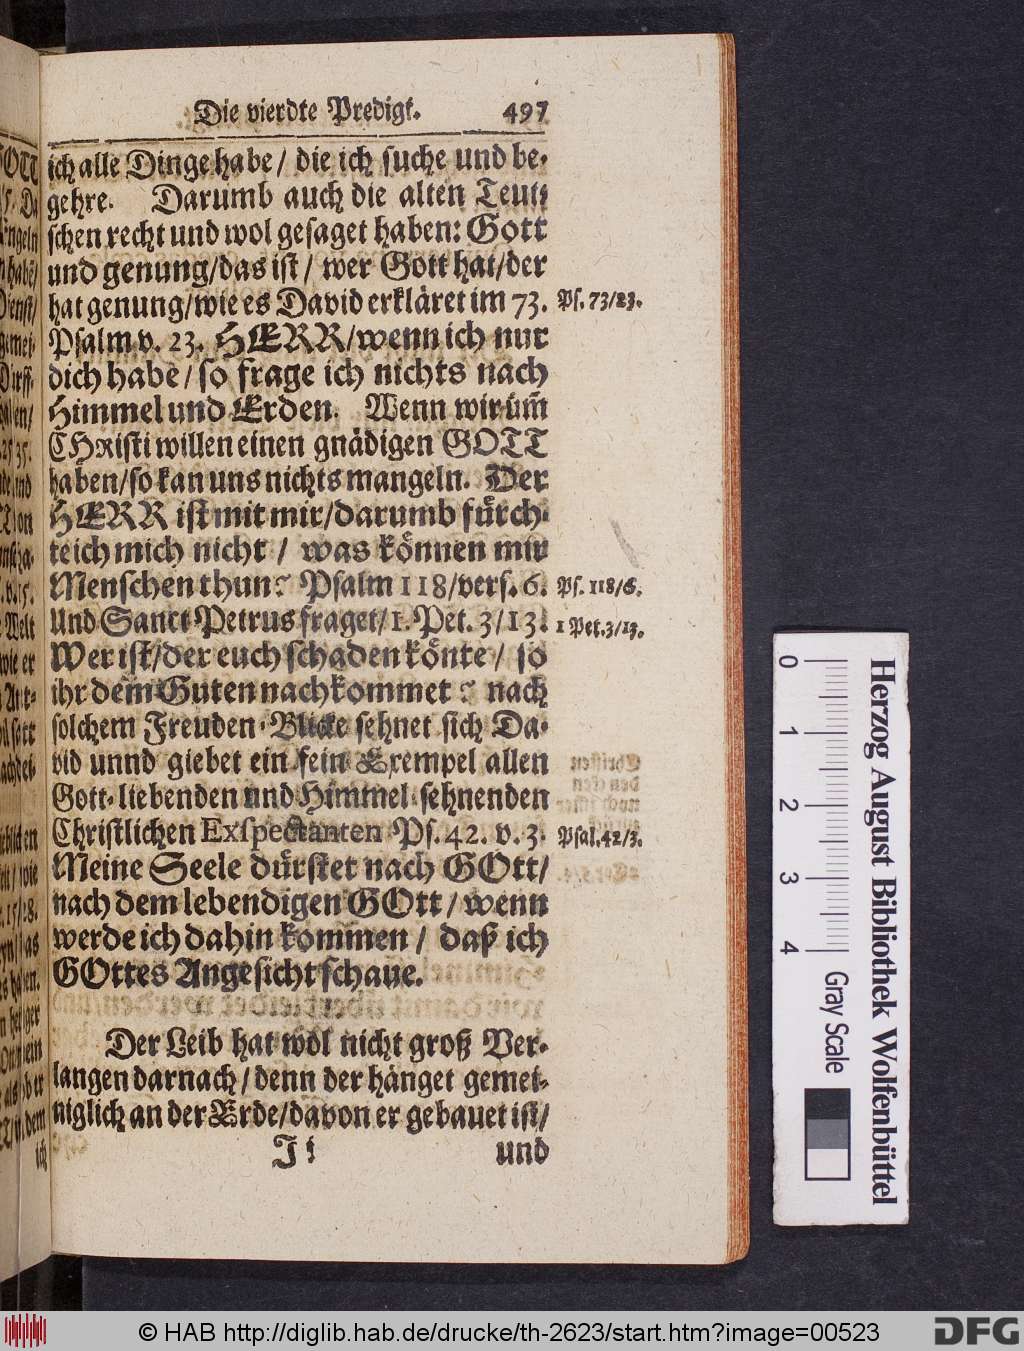 Die vierdte Predigt. 497
ich alle Dinge habe / die ich suche und be-
gehre. Darumb auch die alten Teut-
schen recht und wol gesaget haben: Gott
und genung/das ist / wer Gott hat/der
hat genung/wie es David erkläret im 73.
Ps. 73/23.
Psalm v. 23. HERR/wenn ich nur
dich habe / so frage ich nichts nach
Himmel und Erden. Wenn wir üm̃
CHristi willen einen gnädigen GOTT
haben/so kan uns nichts mangeln. Der
HERR ist mit mir/darumb fürch-
te ich mich nicht / was können mir
Menschen thun? Psalm 118/vers. 6.
Ps. 118/6.
Und Sanct Petrus fraget/1. Pet. 3/13.
1 Pet. 3/13.
Wer ist/der euch schaden könte / so
ihr dem Guten nachkommet? nach
solchem Freuden-Blicke sehnet sich Da-
vid unnd giebet ein fein Exempel allen
Gott-liebenden und Himmel-sehnenden
Christlichen Exspectanten Ps. 42. v. 3.
Psal. 42/3.
Meine Seele dürstet nach GOtt/
nach dem lebendigen GOtt / wenn
werde ich dahin kommen / daß ich
GOttes Angesicht schaue.
Der Leib hat wol nicht groß Ver-
langen darnach / denn der hänget gemei-
niglich an der Erde/davon er gebauet ist/
Ji und
0 1 2 3 4
Herzog August Bibliothek Wolfenbüttel
Gray Scale
© HAB http://diglib.hab.de/drucke/th-2623/start.htm?image=00523
DFG